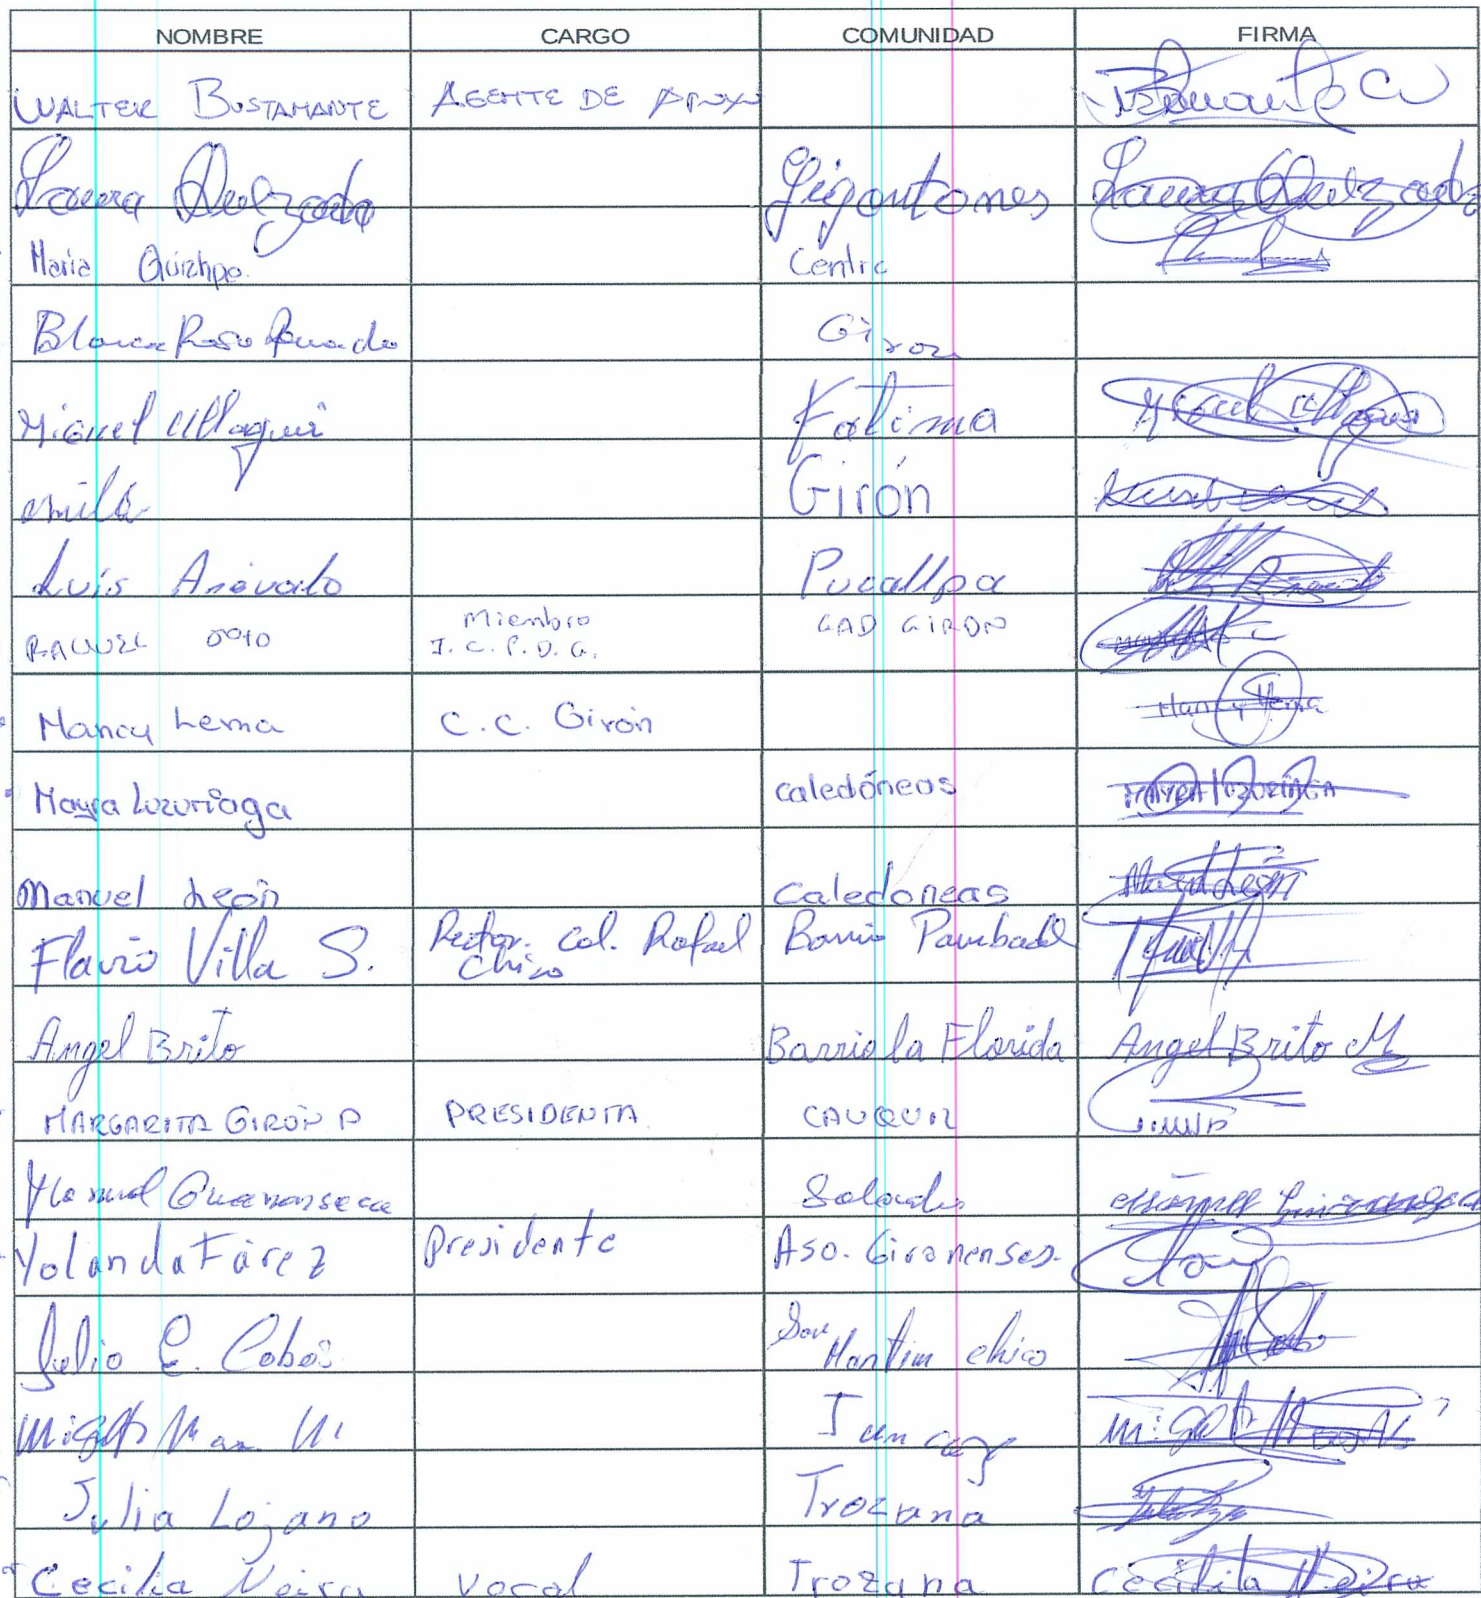 NOMBRE CARGO COMUNIDAD FIRMA
WALTER BUSTAMANTE AGENTE DE APOYO
Laura Delgado Gigantones Laura Delgado
Maria Quizhpe. Centro
Blanca Rosa Giron
Miguel Ullaguri Fatima Miguel
Girón
Luis Arévalo Pucallpa
RAQUEL Miembro GAD GIRON
I.C.P.D.G.
Nancy Lema C.C. Girón Nancy Lema
Mayra Luzuriaga caledóneas MAYRA LUZURIAGA
Manuel León caledoneas Manuel León
Flavio Villa S. Rector. Col. Rafael Barrio
Chico
Angel Brito Barrio la Florida Angel Brito M
MARGARITA GIRÓN P PRESIDENTA CAUQUIL
Manuel Guanansaca
Yolanda Fárez Presidente Aso. Gironenses.
Julio E. Cobos San
Martin chico
Juncay
Julia Lojano Trozana
Cecilia Neira Vocal Trozana Cecilita Neira